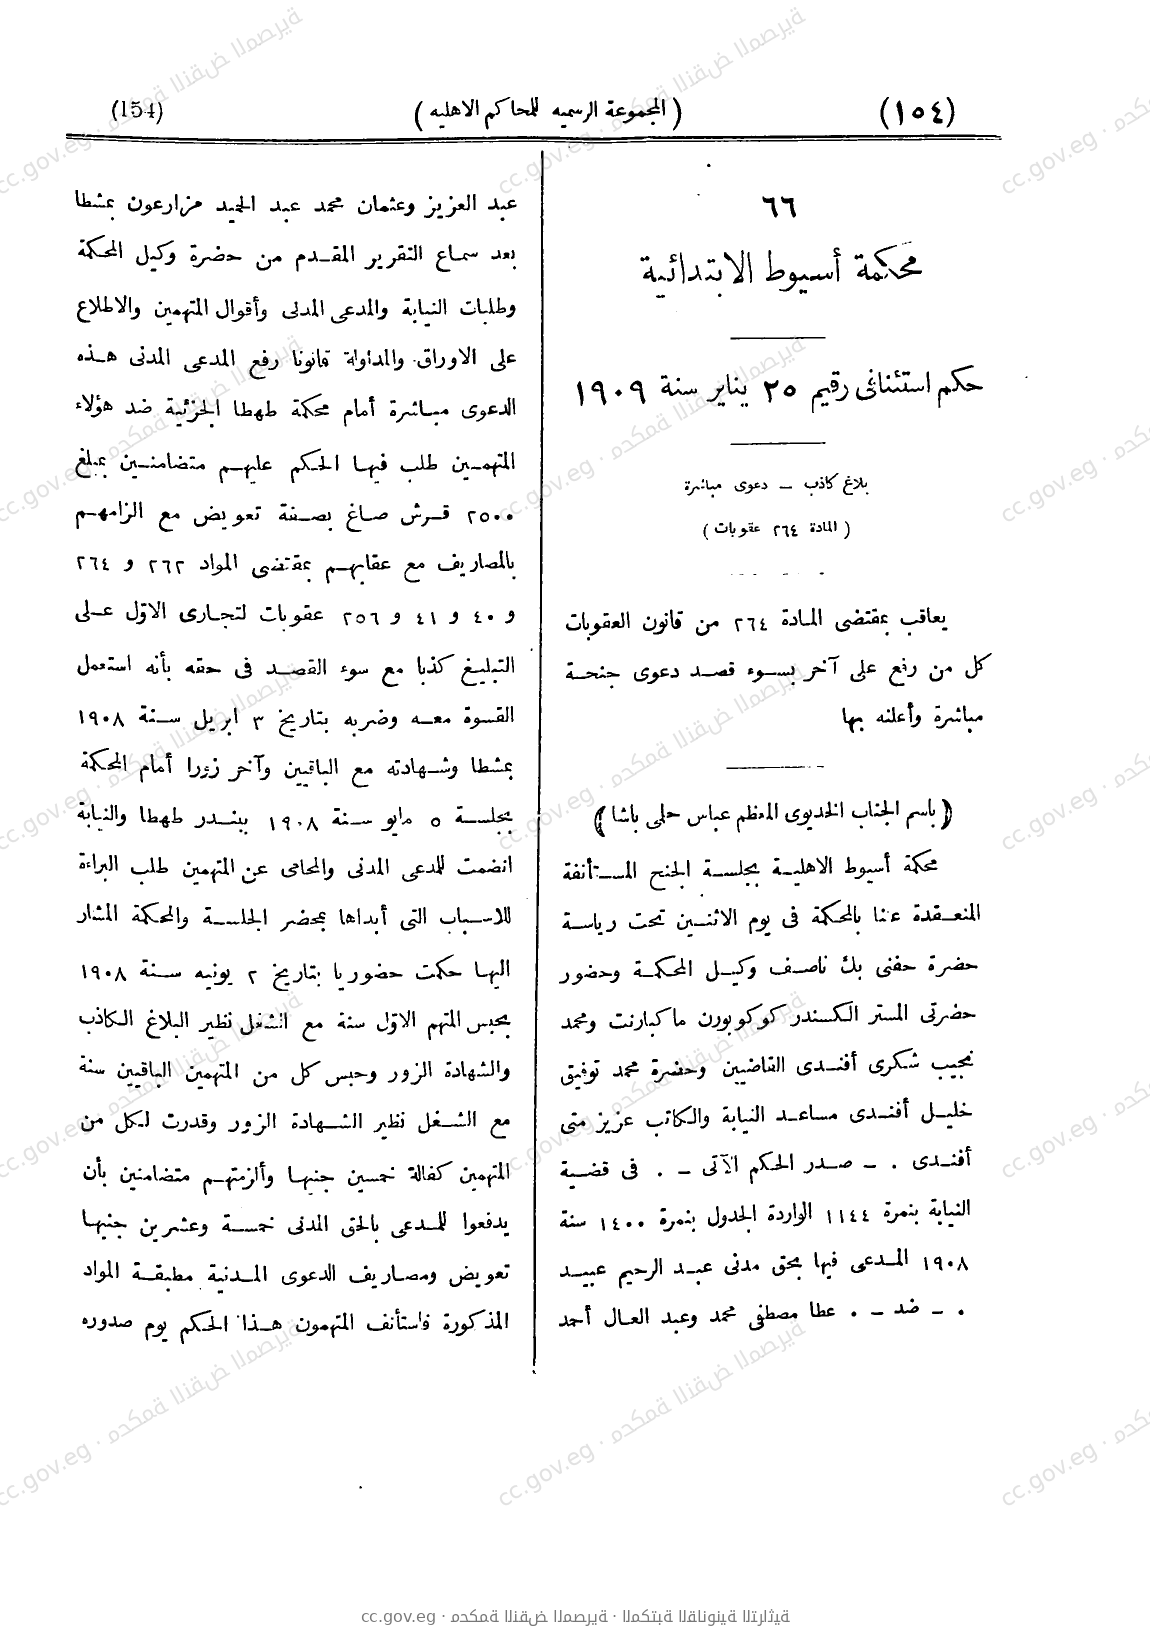 (١٥٤)
(المجموعة الرسميه للمحاكم الاهليه)
(154)
٦٦
محكمة أسيوط الابتدائية
حكم استئنافى رقيم ٢٥ يناير سنة ١٩٠٩
بلاغ كاذب – دعوى مباشرة
(المادة ٢٦٤ عقوبات)
يعاقب بمقتضى المادة ٢٦٤ من قانون العقوبات
كل من رفع على آخر بسوء قصد دعوى جنحة
مباشرة وأعلنه بها
(باسم الجناب الخديوى المعظم عباس حلمى باشا)
محكمة أسيوط الاهلية بجلسة الجنح المستأنفة
المنعقدة علنا بالمحكمة فى يوم الاثنين تحت رياسة
حضرة حفنى بك ناصف وكيل المحكمة وحضور
حضرتى المستر الكسندر كوكوبورن ماكبارنت ومحمد
نجيب شكرى أفندى القاضيين وحضرة محمد توفيق
خليل أفندى مساعد النيابة والكاتب عزيز متى
أفندى . – صدر الحكم الآتى – . فى قضية
النيابة بنمرة ١١٤٤ الواردة الجدول بنمرة ١٤٠٠ سنة
١٩٠٨ المدعى فيها بحق مدنى عبد الرحيم عبيد
. – ضد – . عطا مصطفى محمد وعبد العال أحمد
عبد العزيز وعثمان محمد عبد الحميد مزارعون بمشطا
بعد سماع التقرير المقدم من حضرة وكيل المحكمة
وطلبات النيابة والمدعى المدنى وأقوال المتهمين والاطلاع
على الاوراق والمداولة قانونا رفع المدعى المدنى هذه
الدعوى مباشرة أمام محكمة طهطا الجزئية ضد هؤلاء
المتهمين طلب فيها الحكم عليهم متضامنين بمبلغ
٢٥٠٠ قرش صاغ بصفة تعويض مع الزامهم
بالمصاريف مع عقابهم بمقتضى المواد ٢٦٢ و ٢٦٤
و ٤٠ و ٤١ و ٢٥٦ عقوبات لتجارى الاول على
التبليغ كذبا مع سوء القصد فى حقه بأنه استعمل
القسوة معه وضربه بتاريخ ٣ ابريل سنة ١٩٠٨
بمشطا وشهادته مع الباقيين وآخر زورا أمام المحكمة
بجلسة ٥ مايو سنة ١٩٠٨ ببندر طهطا والنيابة
انضمت للمدعى المدنى والمحامى عن المتهمين طلب البراءة
للاسباب التى أبداها بمحضر الجلسة والمحكمة المشار
اليها حكمت حضوريا بتاريخ ٢ يونيه سنة ١٩٠٨
بحبس المتهم الاول سنة مع الشغل نظير البلاغ الكاذب
والشهادة الزور وحبس كل من المتهمين الباقيين سنة
مع الشغل نظير الشهادة الزور وقدرت لكل من
المتهمين كفالة خمسين جنيها وألزمتهم متضامنين بأن
يدفعوا للمدعى بالحق المدنى خمسة وعشرين جنيها
تعويض ومصاريف الدعوى المدنية مطبقة المواد
المذكورة فاستأنف المتهمون هذا الحكم يوم صدوره
cc.gov.eg · محكمة النقض المصرية · المكتبة القانونية التراثية